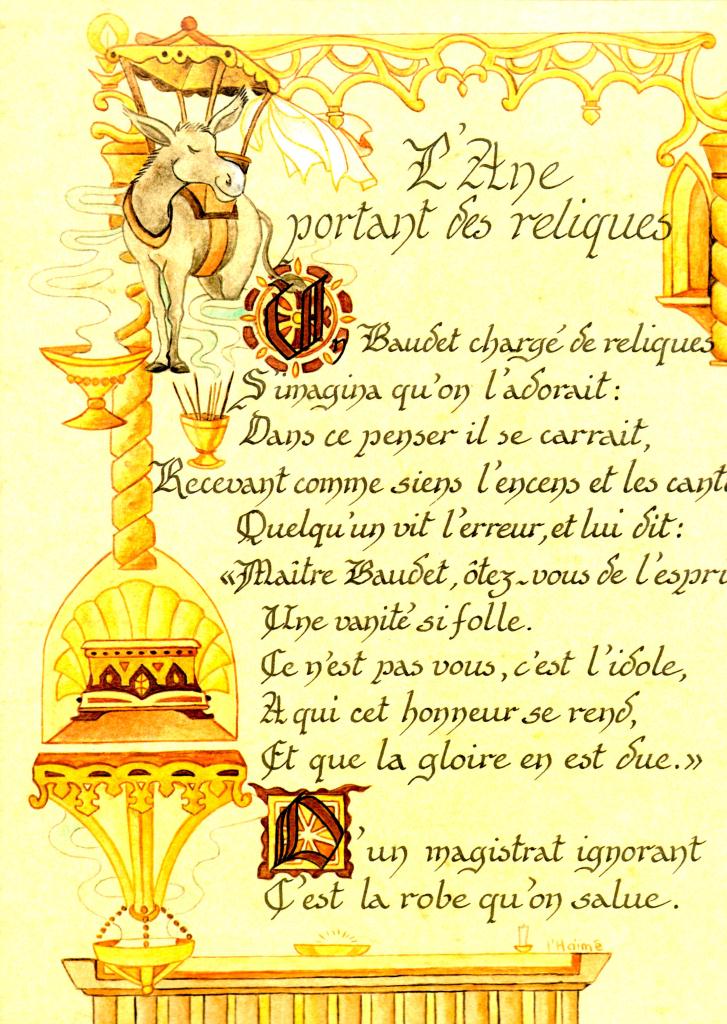 L'Ane
portant des reliques
Un Baudet chargé de reliques
S'imagina qu'on l'adorait :
Dans ce penser il se carrait,
Recevant comme siens l'encens et les cant
Quelqu'un vit l'erreur, et lui dit :
«Maître Baudet, ôtez-vous de l'espri
Une vanité si folle.
Ce n'est pas vous, c'est l'idole,
A qui cet honneur se rend,
Et que la gloire en est due.»
D'un magistrat ignorant
C'est la robe qu'on salue.
l'Haimé